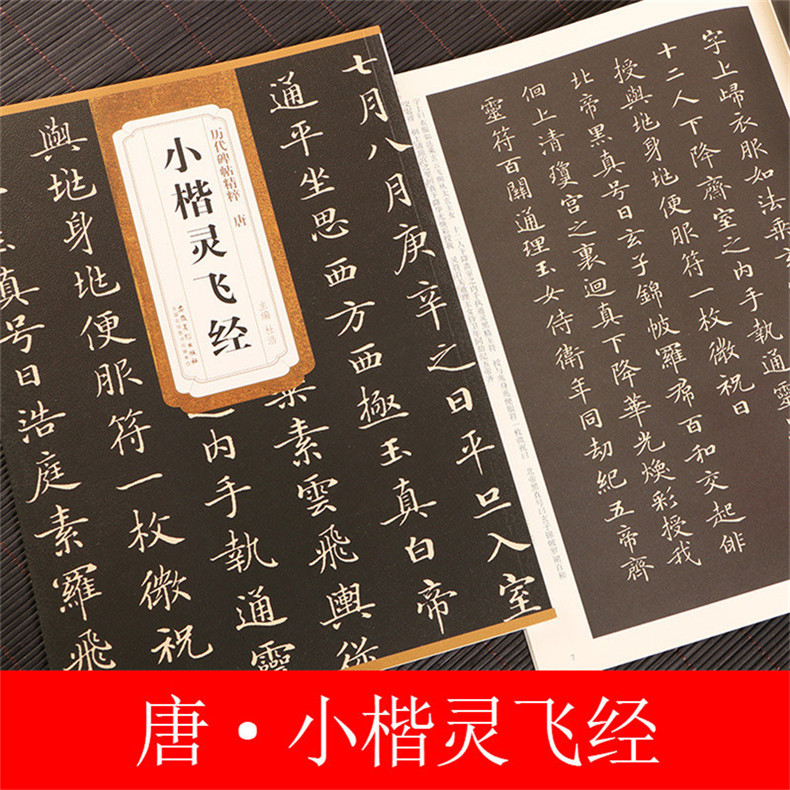 历代碑帖精粹 唐
小楷灵飞经
主编 杜浩
七月八月庚辛之日平旦入室
通平坐思西方西極玉真白帝
乘素雲飛輿從
之内手執通靈
與兆身兆便服符一枚微祝
真号曰浩庭素羅飛
字上歸衣服如法乘玄
十二人下降齊室之内手執通靈
授與兆身兆便服符一枚微祝曰
北帝黑真号曰玄子錦帔羅帬百和交起俳
佪上清瓊宮之裏迴真下降華光煥彩授我
靈符百關通理玉女侍衛年同劫紀五帝齊
7
唐·小楷灵飞经